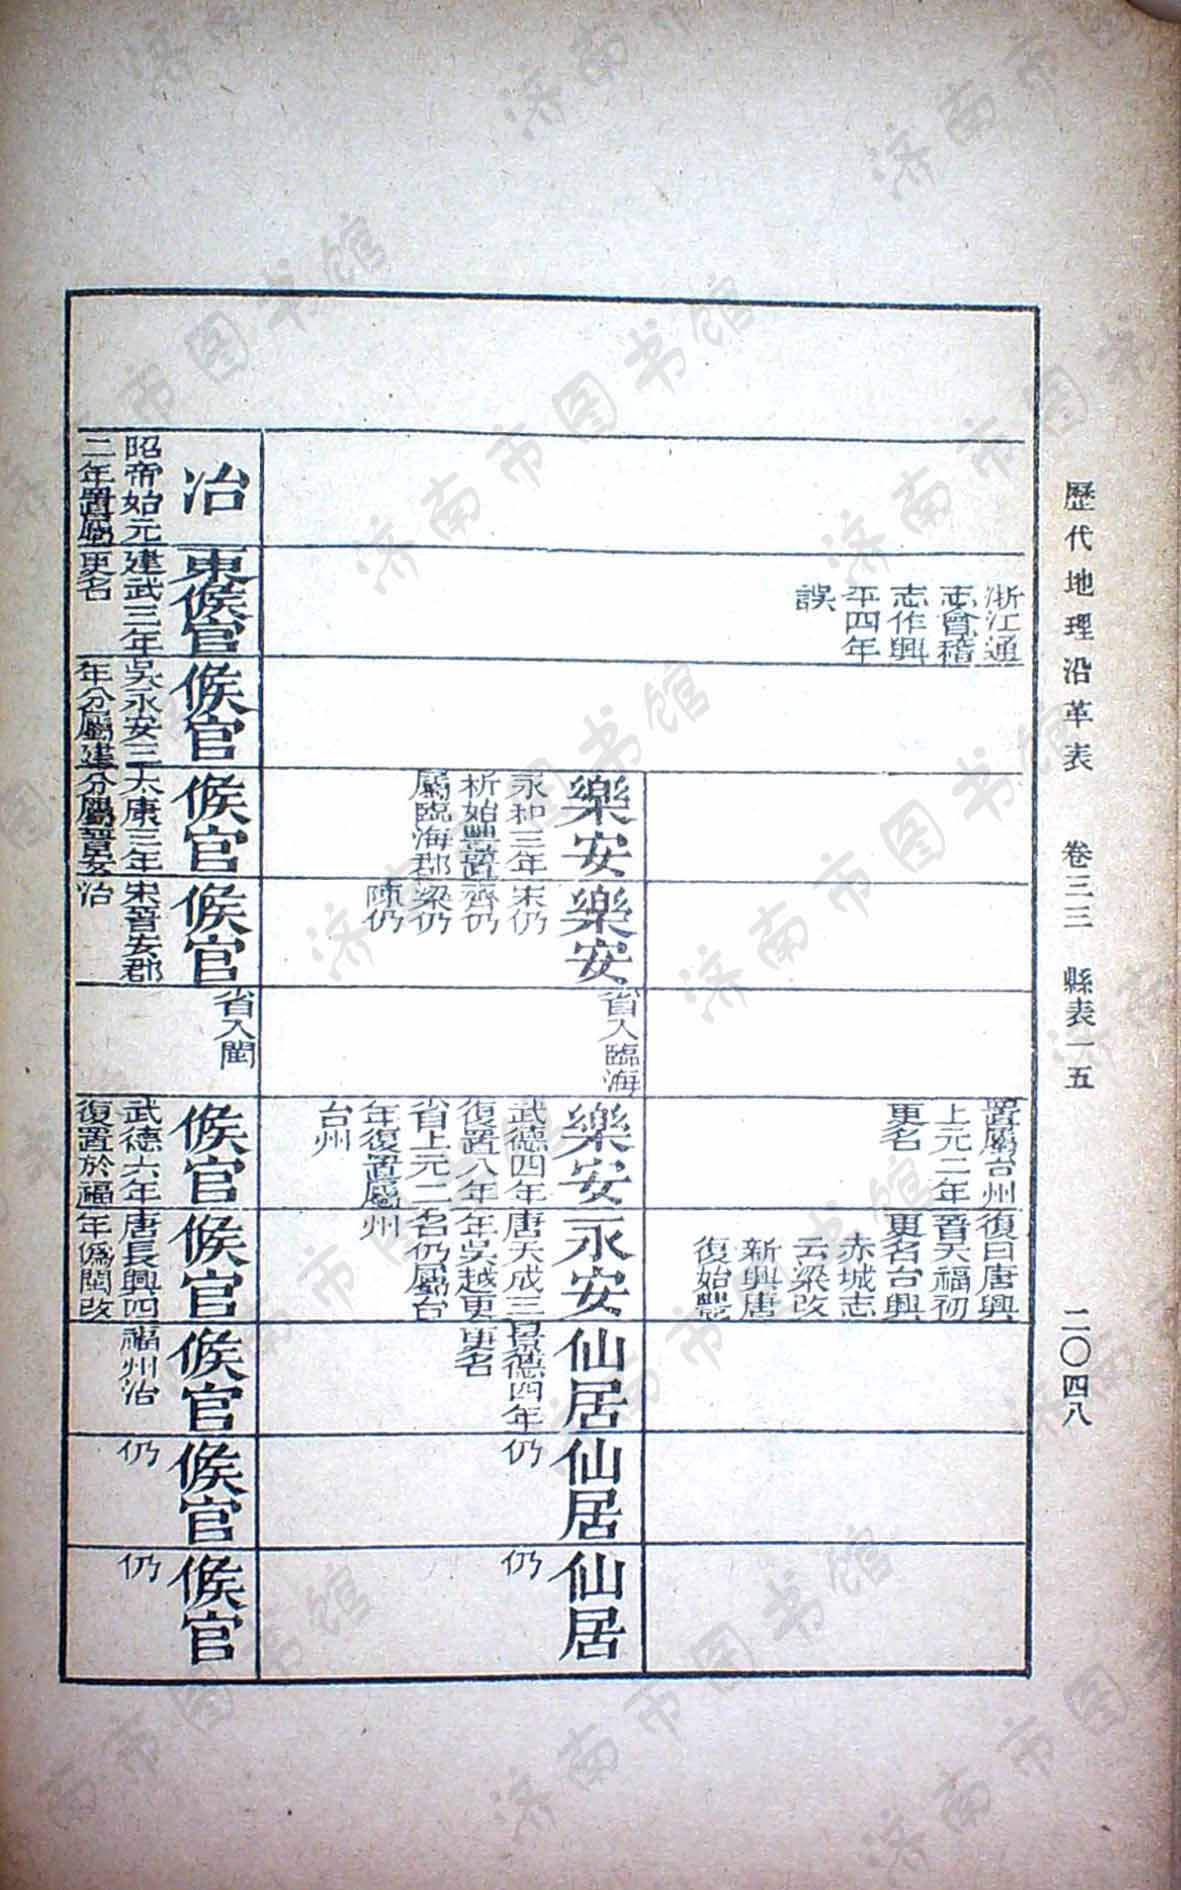 歷代地理沿革表　卷三三　縣表一五　二〇四八
浙江通
志會稽
志作興
平四年
誤
置屬台州
上元二年
更名
復曰唐興
晉天福初
更名台興
赤城志
云梁改
新興唐
復始豐
樂安
永和三年
析始豐置
屬臨海郡
樂安
宋仍
齊仍
梁仍
陳仍
省入臨海
樂安
武德四年
復置八年
省上元二
年復置屬
台州
永安
唐天成三
年吳越更
名仍屬台
州
仙居
景德四年
更名
仙居
仍
仙居
仍
冶
昭帝始元
二年置屬
東候官
建武三年
更名
候官
吳永安三
年分屬建
候官
太康三年
分屬晉安
候官
宋晉安郡
治
省入閩
候官
武德六年
復置於福
候官
唐長興四
年僞閩改
候官
福州治
候官
仍
候官
仍
济南市图书馆